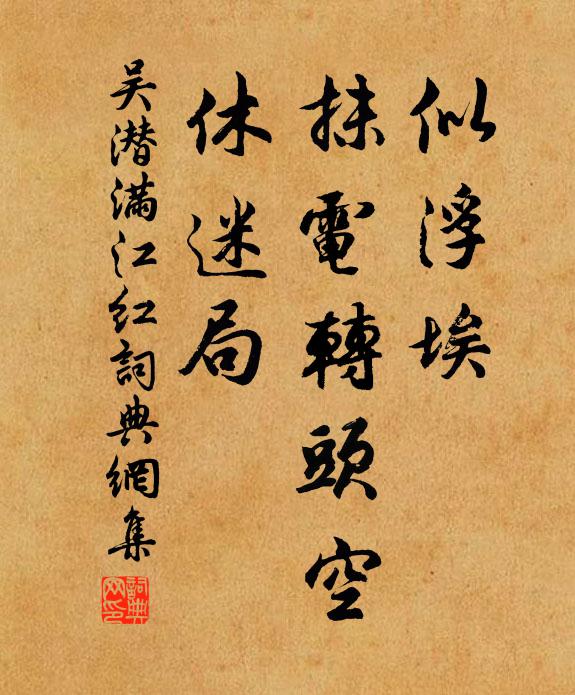 似浮埃
抹電轉頭空
休迷局
吴潛滿江红詞典網集
詞典網印